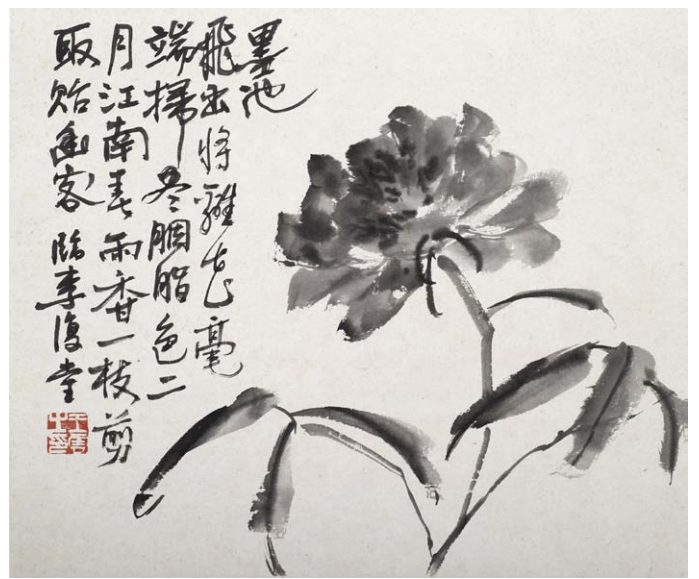 墨池
飛出將離花毫
端掃尽胭脂色二
月江南春雨香一枝剪
取貽幽客 臨李復堂